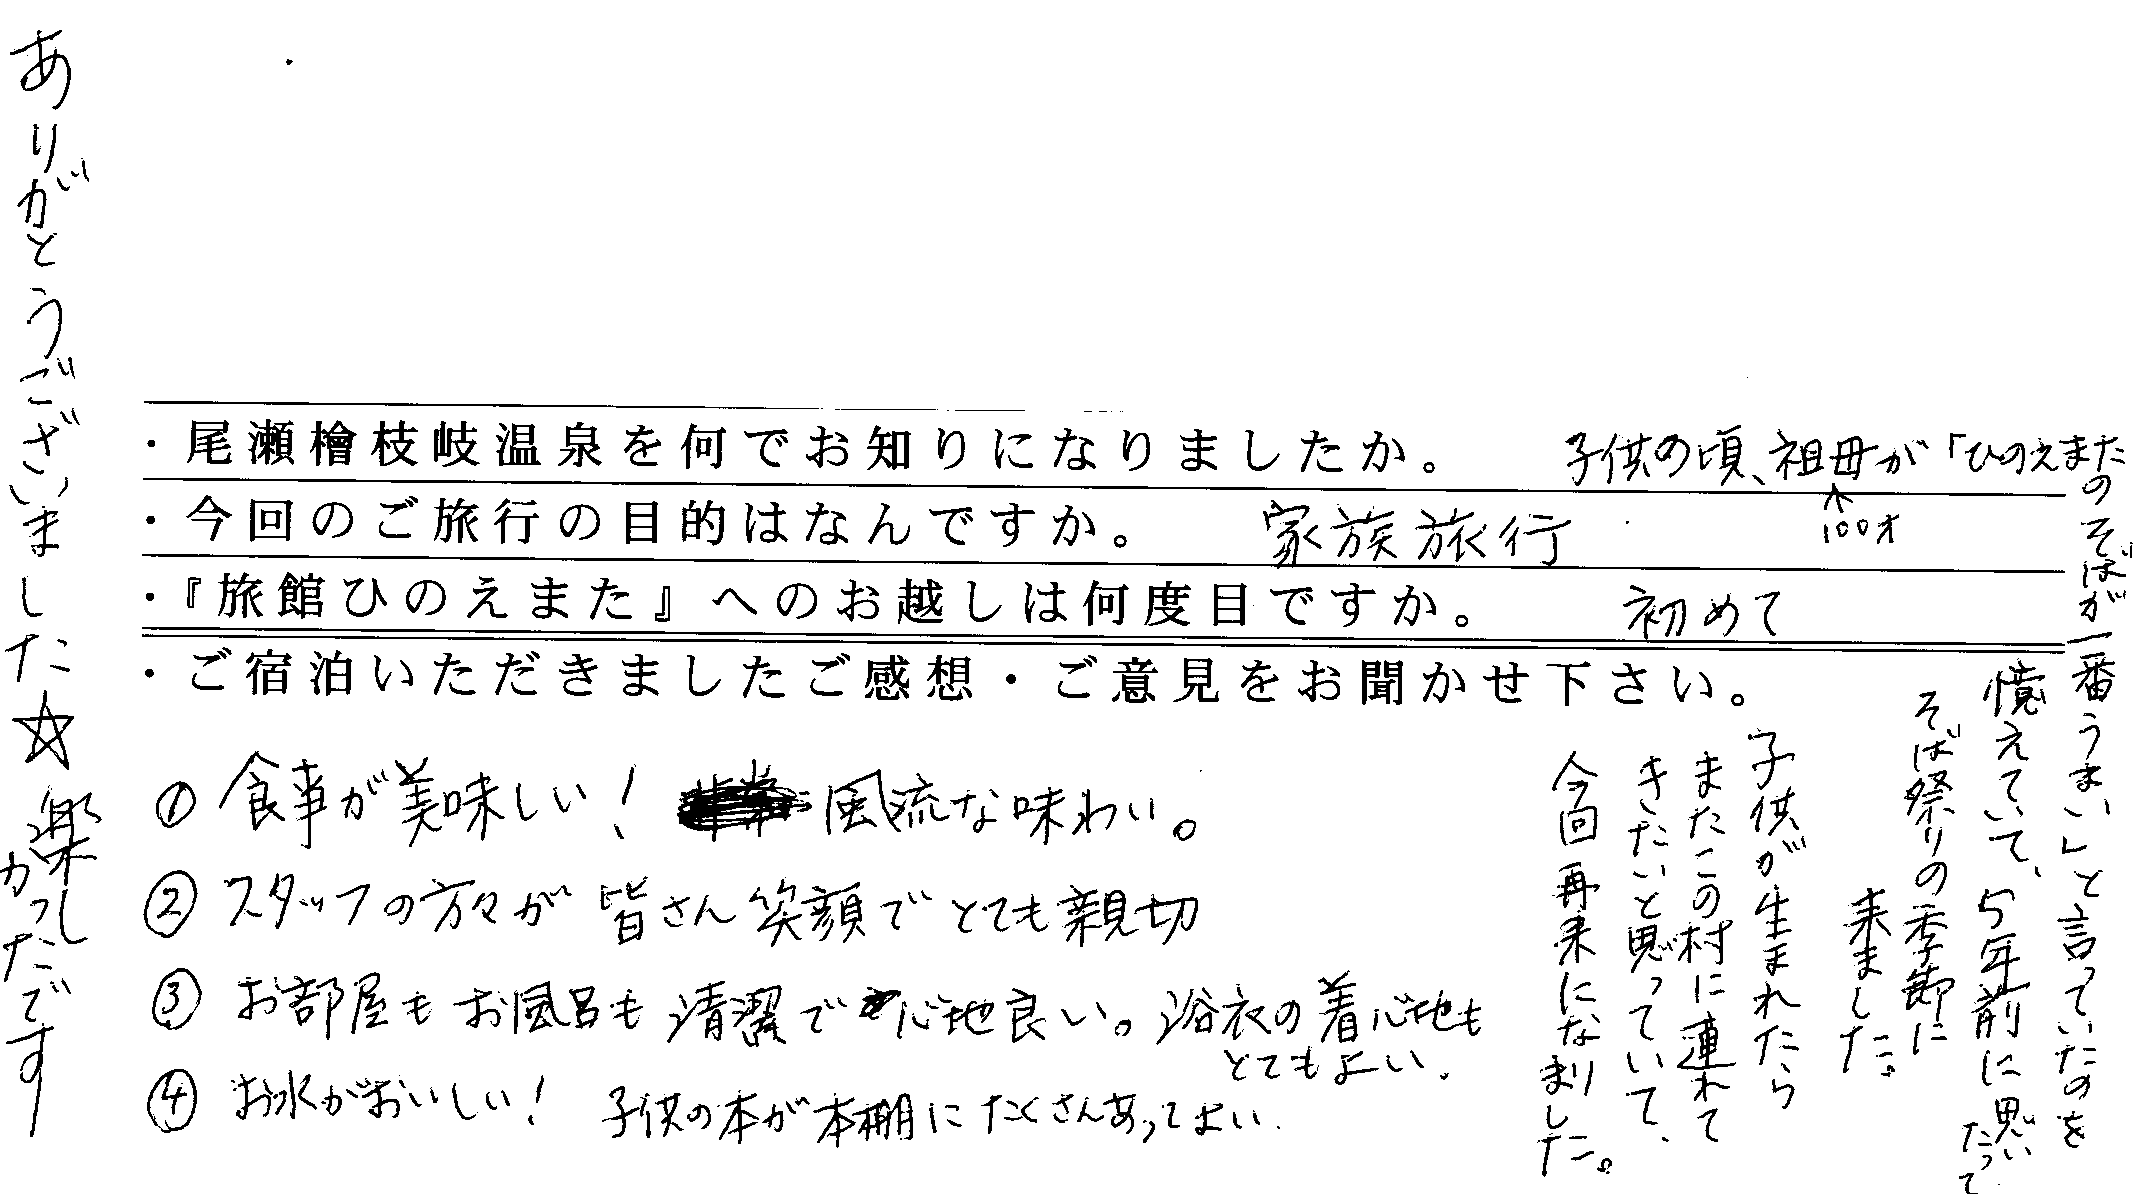 ・尾瀬檜枝岐温泉を何でお知りになりましたか。
子供の頃、祖母が「ひのえまた
のそばが一番うまい」と言っていたのを
憶えていて、5年前に思い
たって
そば祭りの季節に
来ました。
子供が生まれたら
またこの村に連れて
きたいと思っていて、
今回再来になりました。
↑
100才
・今回のご旅行の目的はなんですか。 家族旅行
・『旅館ひのえまた』へのお越しは何度目ですか。 初めて
・ご宿泊いただきましたご感想・ご意見をお聞かせ下さい。
① 食事が美味しい! 風流な味わい。
② スタッフの方々が 皆さん笑顔でとても親切
③ お部屋もお風呂も清潔で心地良い。浴衣の着心地も
とてもよい.
④ お水がおいしい! 子供の本が本棚にたくさんあってよい.
ありがとうございました☆楽し
かったです